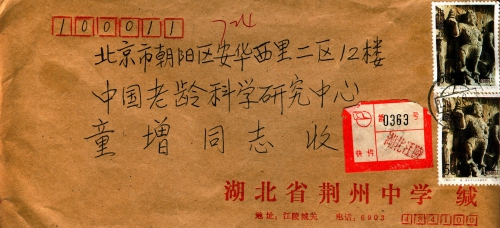 100011
北京市朝阳区安华西里二区12楼
中国老龄科学研究中心
童增同志收
0363
号
快件
湖北江陵
湖北省荆州中学 缄
地址：江陵城关 电话：6903 434100